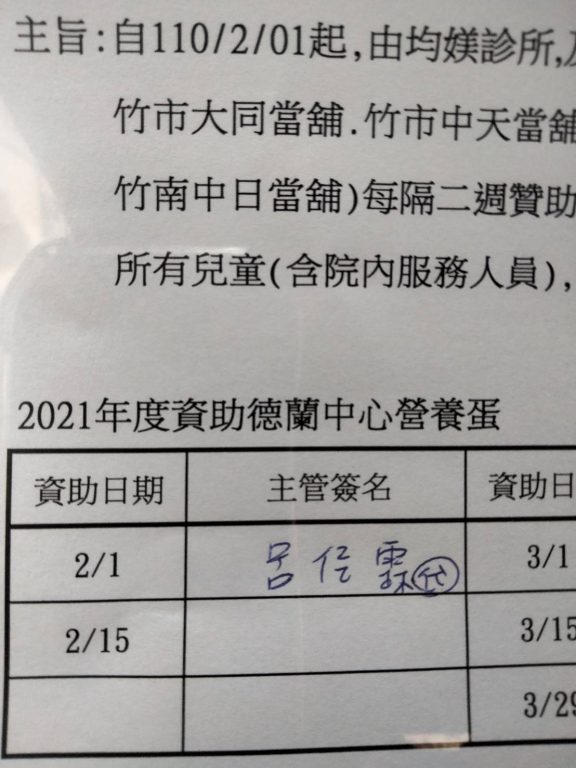 主旨:自110/2/01起,由均媄診所,
竹市大同當舖.竹市中天當舖
竹南中日當舖)每隔二週贊助
所有兒童(含院內服務人員),
2021年度資助德蘭中心營養蛋
資助日期 主管簽名 資助日
2/1 呂 代 3/1
2/15 3/15
3/29